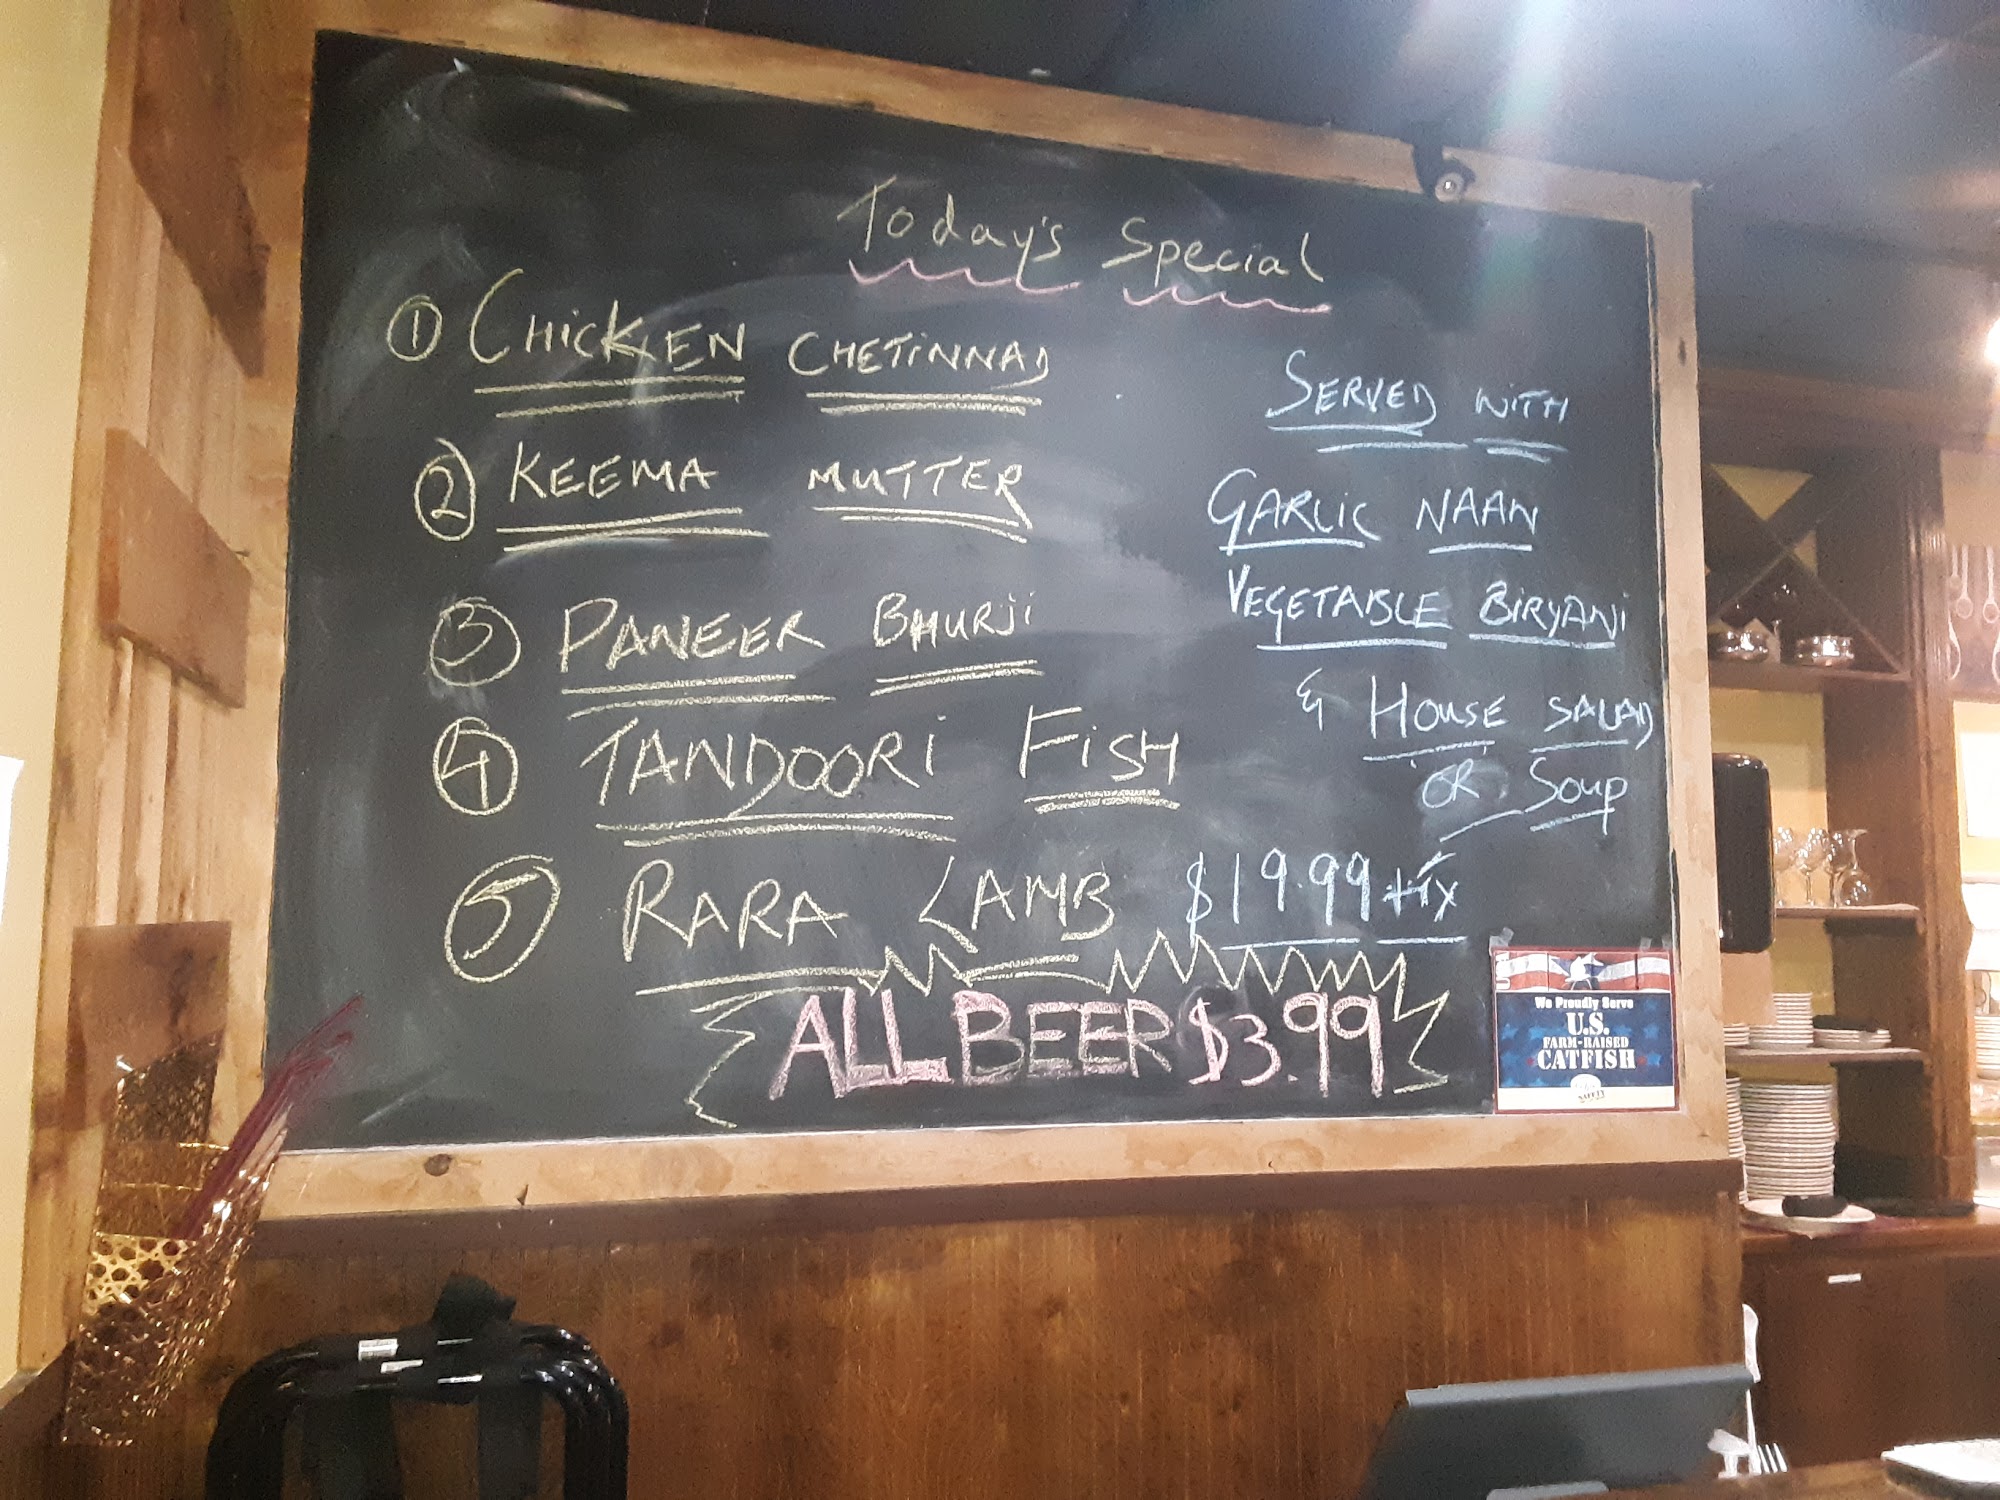 Today's Special
① CHICKEN CHETINNAD
② KEEMA MUTTER
③ PANEER BHURJI
④ TANDOORI FISH
⑤ RARA LAMB
SERVED WITH
GARLIC NAAN
VEGETABLE BIRYANI
& HOUSE SALAD
OR Soup
$19.99 +Tx
ALL BEER $3.99
We Proudly Serve
U.S.
FARM-RAISED
CATFISH